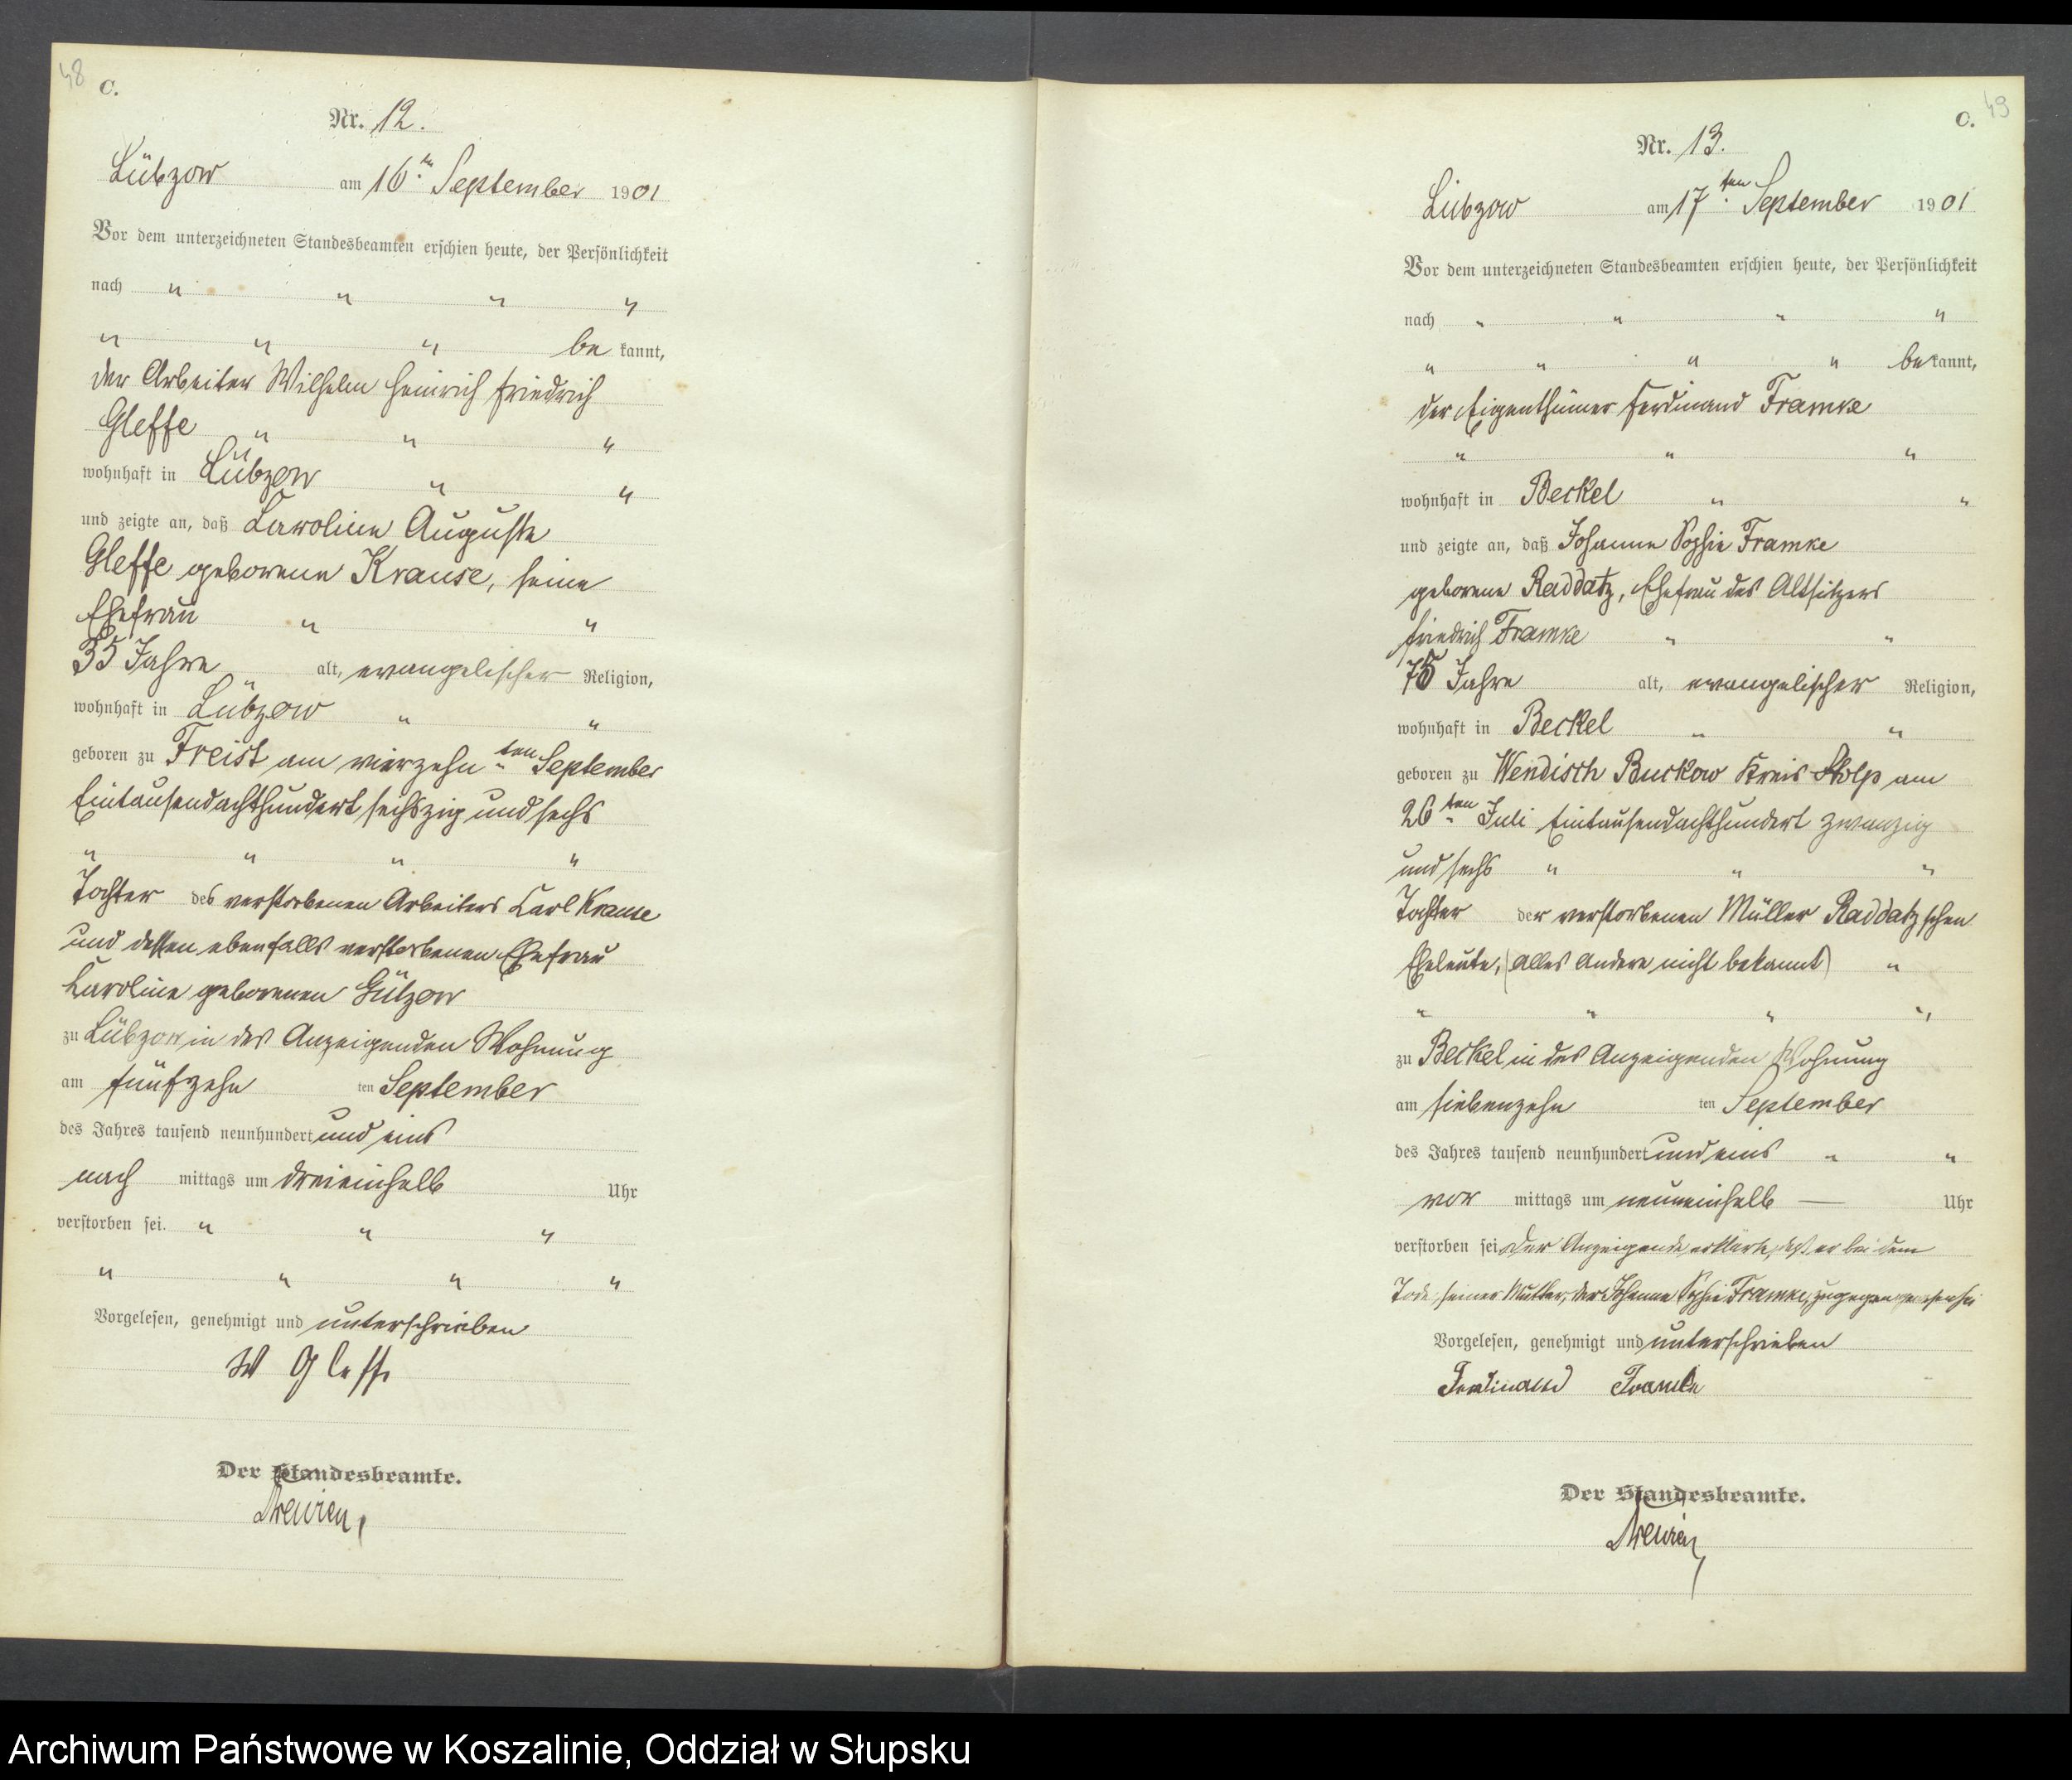 48
C.
Nr. 12.
Lübzow am 16ten September 1901
Vor dem unterzeichneten Standesbeamten erschien heute, der Persönlichkeit
nach " " " "
" " " be kannt,
der Arbeiter Wilhelm Heinrich Friedrich
Gleffe " " "
wohnhaft in Lübzow " "
und zeigte an, daß Karoline Auguste
Gleffe geborene Krause, seine
Ehefrau " "
35 Jahre " alt, evangelischer Religion,
wohnhaft in Lübzow " "
geboren zu Freist am vierzehnten September
Eintausendachthundert sechszig und sechs
" " " "
Tochter des verstorbenen Arbeiters Carl Krause
und dessen ebenfalls verstorbenen Ehefrau
Karoline geborenen Gützow
zu Lübzow in des Anzeigenden Wohnung
am fünfzehn ten September
des Jahres tausend neunhundert und eins
nach mittags um dreieinhalb Uhr
verstorben sei. " " "
" " " "
Vorgelesen, genehmigt und unterschrieben
W Gleffe
Der Standesbeamte.
49
C.
Nr. 13.
Lübzow am 17ten September 1901
Vor dem unterzeichneten Standesbeamten erschien heute, der Persönlichkeit
nach " " " "
" " " " be kannt,
der Eigenthümer Ferdinand Framke
" " "
wohnhaft in Beckel " "
und zeigte an, daß Johanne Sophie Framke
geborene Raddatz, Ehefrau des Altsitzers
Friedrich Framke " "
75 Jahre alt, evangelischer Religion,
wohnhaft in Beckel " "
geboren zu Wendisch Buckow Kreis Stolp am
26ten Juli Eintausendachthundert zwanzig
und sechs " " "
Tochter der verstorbenen Müller Raddatzschen
Eheleute, (alles Andere nicht bekannt) "
" " " "
zu Beckel in des Anzeigenden Wohnung
am siebenzehn ten September
des Jahres tausend neunhundert und eins " "
vor mittags um neuneinhalb — Uhr
verstorben sei. Der Anzeigende erklärte, daß er bei dem
Tode seiner Mutter, der Johanne Sophie Framke, zugegen gewesen sei
Vorgelesen, genehmigt und unterschrieben
Ferdinand Framke
Der Standesbeamte.
Archiwum Państwowe w Koszalinie, Oddział w Słupsku